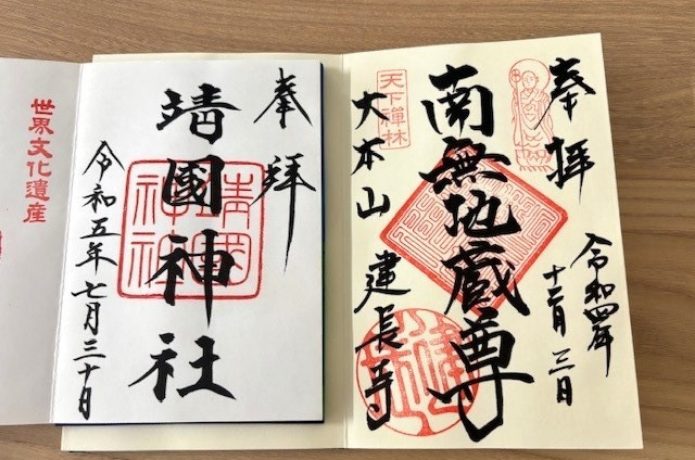 奉拝
天下禅林
南無地蔵尊
大本山 建長寺
令和四年
十二月三日
奉拝
靖國神社
靖國神社
令和五年七月三十日
世界文化遺産